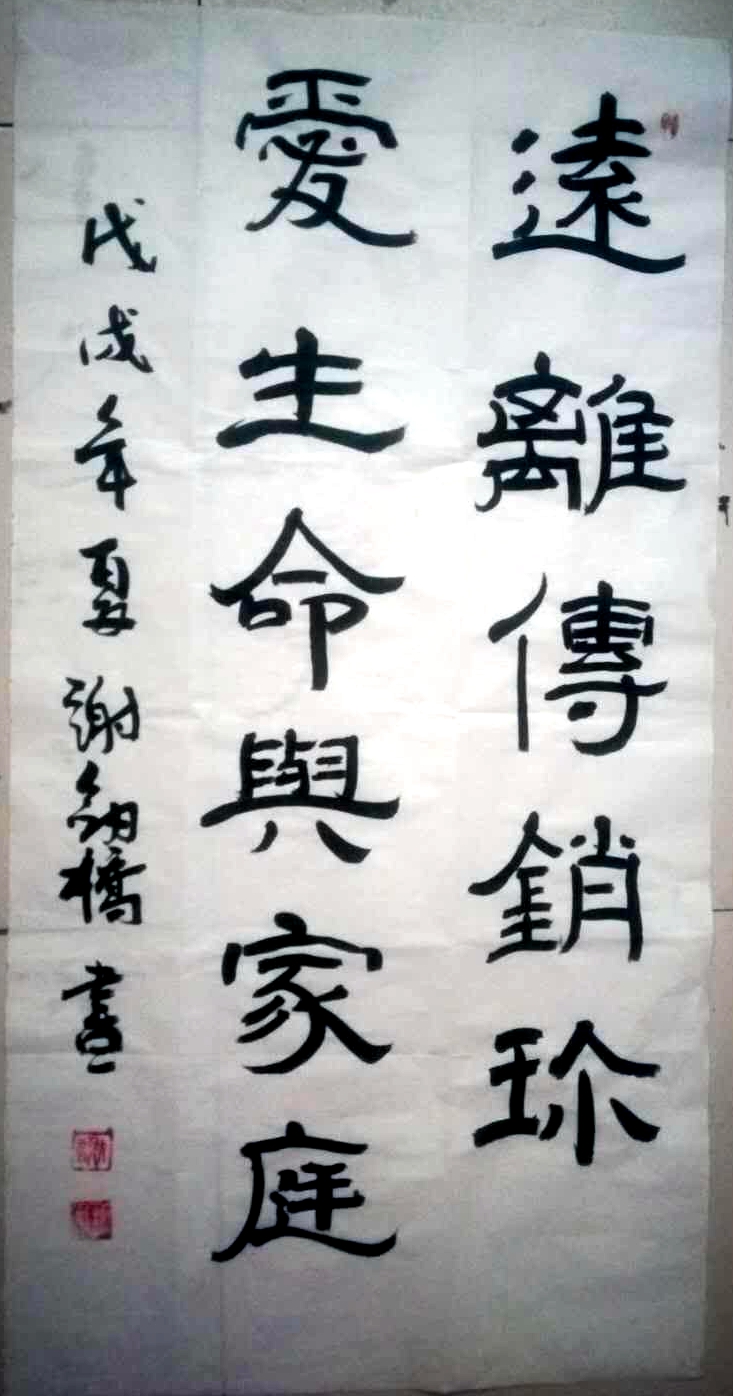 遠離傳銷珎
愛生命與家庭
戊戌年夏謝劍橋書